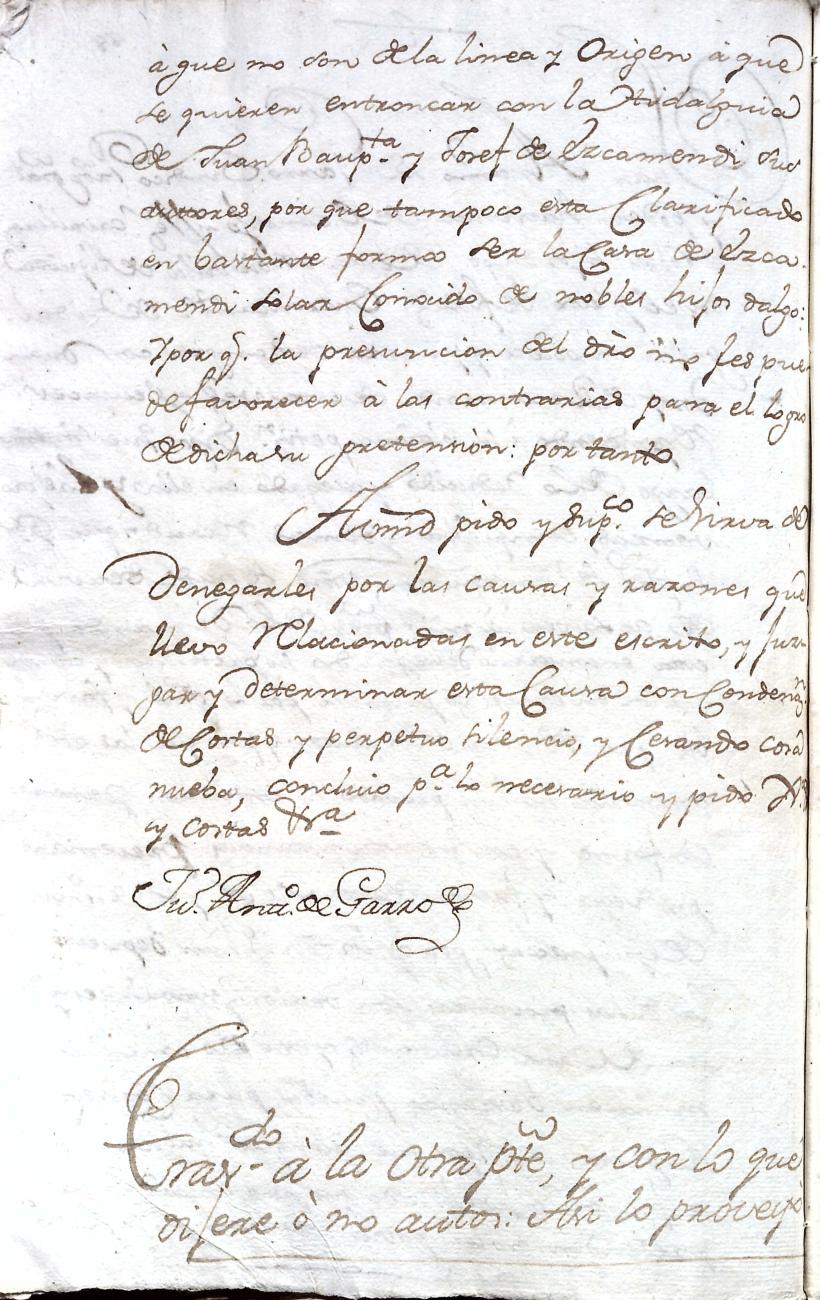 à que no son de la linea y Origen à que
se quieren entroncar con la Hidalguia
de Juan Baupta. y Josef de Ezcamendi sus
auttores, por que tampoco esta Clarificado
en bastante forma ser la Casa de Ezca-
mendi solar Conocido de nobles hijos dalgo:
Y por q. la presuncion del dro no les pue-
de favorecer à las contrarias para el logro
de dicha su pretension: por tanto
A Vmd pido y supco. se sirva de
Denegarles por las causas y razones que
llevo Relacionadas en este escrito, y Juz-
gar y determinar esta Causa con Condenn.
de Costas y perpetuo silencio, y Cesando cosa
nueba, concluio pa. lo necesario y pido
y costas &a
Jud. Anto. de Garro
Trasdo. à la otra pte, y con lo que
dijere ò no autos: Asi lo proveyò